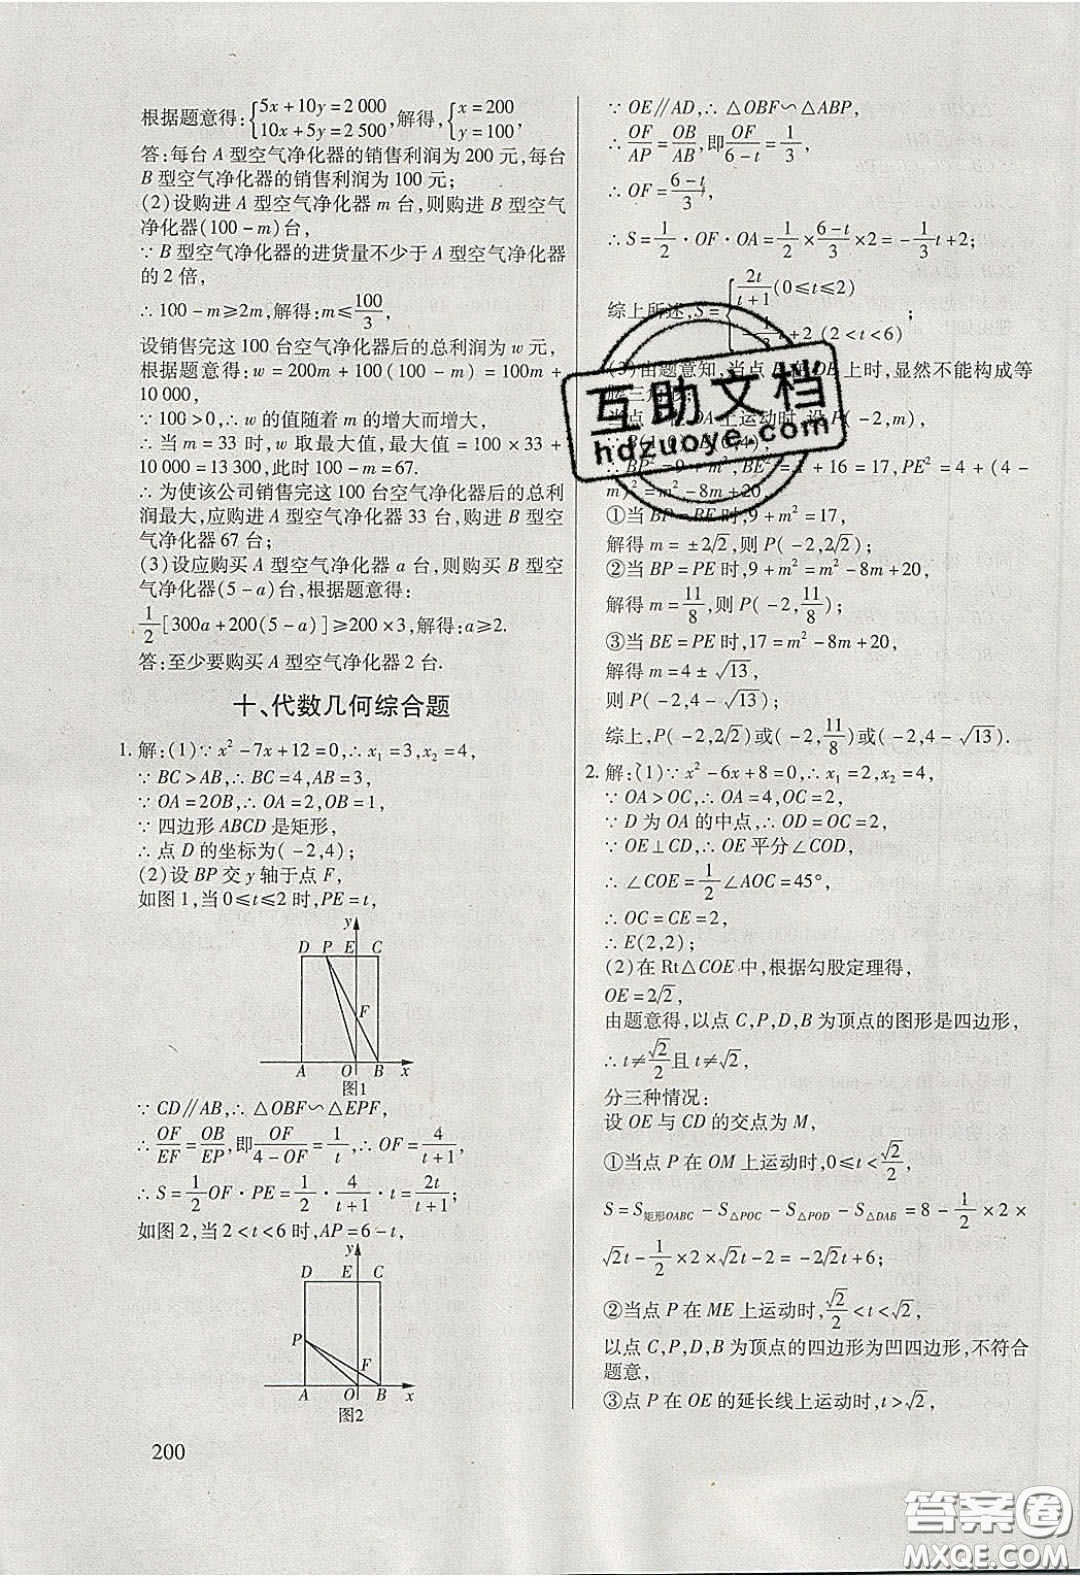 根据题意得:{5x+10y=2 000 10x+5y=2 500,解得,{x=200 y=100,
答:每台 A 型空气净化器的销售利润为 200 元,每台
B 型空气净化器的销售利润为 100 元;
(2)设购进 A 型空气净化器 m 台,则购进 B 型空气
净化器(100-m)台,
∵ B 型空气净化器的进货量不少于 A 型空气净化器
的 2 倍,
∴ 100-m≥2m,解得:m≤100/3,
设销售完这 100 台空气净化器后的总利润为 w 元,
根据题意得:w=200m+100(100-m)=100m+
10 000,
∵ 100>0,∴ w 的值随着 m 的增大而增大,
∴ 当 m=33 时,w 取最大值,最大值=100×33+
10 000=13 300,此时100-m=67.
∴ 为使该公司销售完这 100 台空气净化器后的总利
润最大,应购进 A 型空气净化器 33 台,购进 B 型空
气净化器 67 台;
(3)设应购买 A 型空气净化器 a 台,则购买 B 型空
气净化器(5-a)台,根据题意得:
1/2[300a+200(5-a)]≥200×3,解得:a≥2.
答:至少要购买 A 型空气净化器 2 台.
十、代数几何综合题
1. 解:(1)∵ x²-7x+12=0,∴ x₁=3,x₂=4,
∵ BC>AB,∴ BC=4,AB=3,
∵ OA=2OB,∴ OA=2,OB=1,
∵ 四边形 ABCD 是矩形,
∴ 点 D 的坐标为(-2,4);
(2)设 BP 交 y 轴于点 F,
如图 1,当 0≤t≤2 时,PE=t,
y
D P E C
F
A O B x
图1
∵ CD∥AB,∴ △OBF∽△EPF,
∴ OF/EF=OB/EP,即OF/(4-OF)=1/t,∴ OF=4/(t+1),
∴ S=1/2OF·PE=1/2·4/(t+1)·t=2t/(t+1);
如图 2,当 2<t<6 时,AP=6-t,
y
D E C
P
F
A O B x
图2
200
∵ OE∥AD,∴ △OBF∽△ABP,
∴ OF/AP=OB/AB,即OF/(6-t)=1/3,
∴ OF=(6-t)/3,
∴ S=1/2·OF·OA=1/2×(6-t)/3×2=-1/3t+2;
综上所述,S={2t/(t+1)(0≤t≤2) -1/3t+2 (2<t<6);
(3)由题意知,当点 P 在 DE 上时,显然不能构成等
腰三角形;
当点 P 在 DA 上运动时,设 P(-2,m),
∵ B(1,0),E(0,4),
∴ BP²=9+m²,BE²=1+16=17,PE²=4+(4-
m)²=m²-8m+20,
①当 BP=BE 时,9+m²=17,
解得 m=±2√2,则 P(-2,2√2);
②当 BP=PE 时,9+m²=m²-8m+20,
解得 m=11/8,则 P(-2,11/8);
③当 BE=PE 时,17=m²-8m+20,
解得 m=4±√13,
则 P(-2,4-√13);
综上,P(-2,2√2)或(-2,11/8)或(-2,4-√13).
2. 解:(1)∵ x²-6x+8=0,∴ x₁=2,x₂=4,
∵ OA>OC,∴ OA=4,OC=2,
∵ D 为 OA 的中点,∴ OD=OC=2,
∵ OE⊥CD,∴ OE 平分∠COD,
∴ ∠COE=1/2∠AOC=45°,
∴ OC=CE=2,
∴ E(2,2);
(2)在 Rt△COE 中,根据勾股定理得,
OE=2√2,
由题意得,以点 C,P,D,B 为顶点的图形是四边形,
∴ t≠√2/2且 t≠√2,
分三种情况:
设 OE 与 CD 的交点为 M,
①当点 P 在 OM 上运动时,0≤t<√2/2,
S=S矩形OABC-S△POC-S△POD-S△DAB=8-1/2×2×
√2t-1/2×2×√2t-2=-2√2t+6;
②当点 P 在 ME 上运动时,√2/2<t<√2,
以点 C,P,D,B 为顶点的四边形为凹四边形,不符合
题意,
③点 P 在 OE 的延长线上运动时,t>√2,
互助文档
hdzuoye.com
答案圈
MXQE.COM